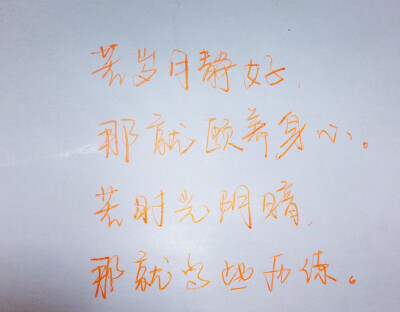 若岁月静好,
那就颐养身心。
若时光阴暗,
那就多些历练。